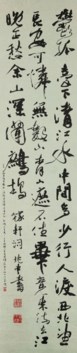 鬱孤臺下清江水中間多少行人淚西北望
長安可憐無數山青山遮不住畢竟東流去江
晚正愁余山深聞鷓鴣 稼軒詞